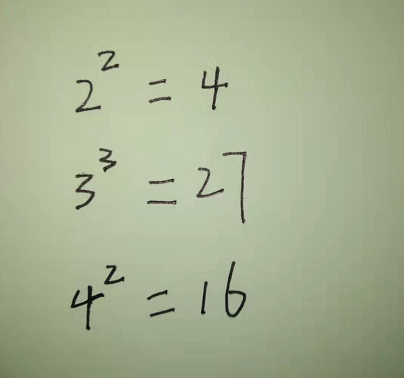 2² = 4
3³ = 27
4² = 16